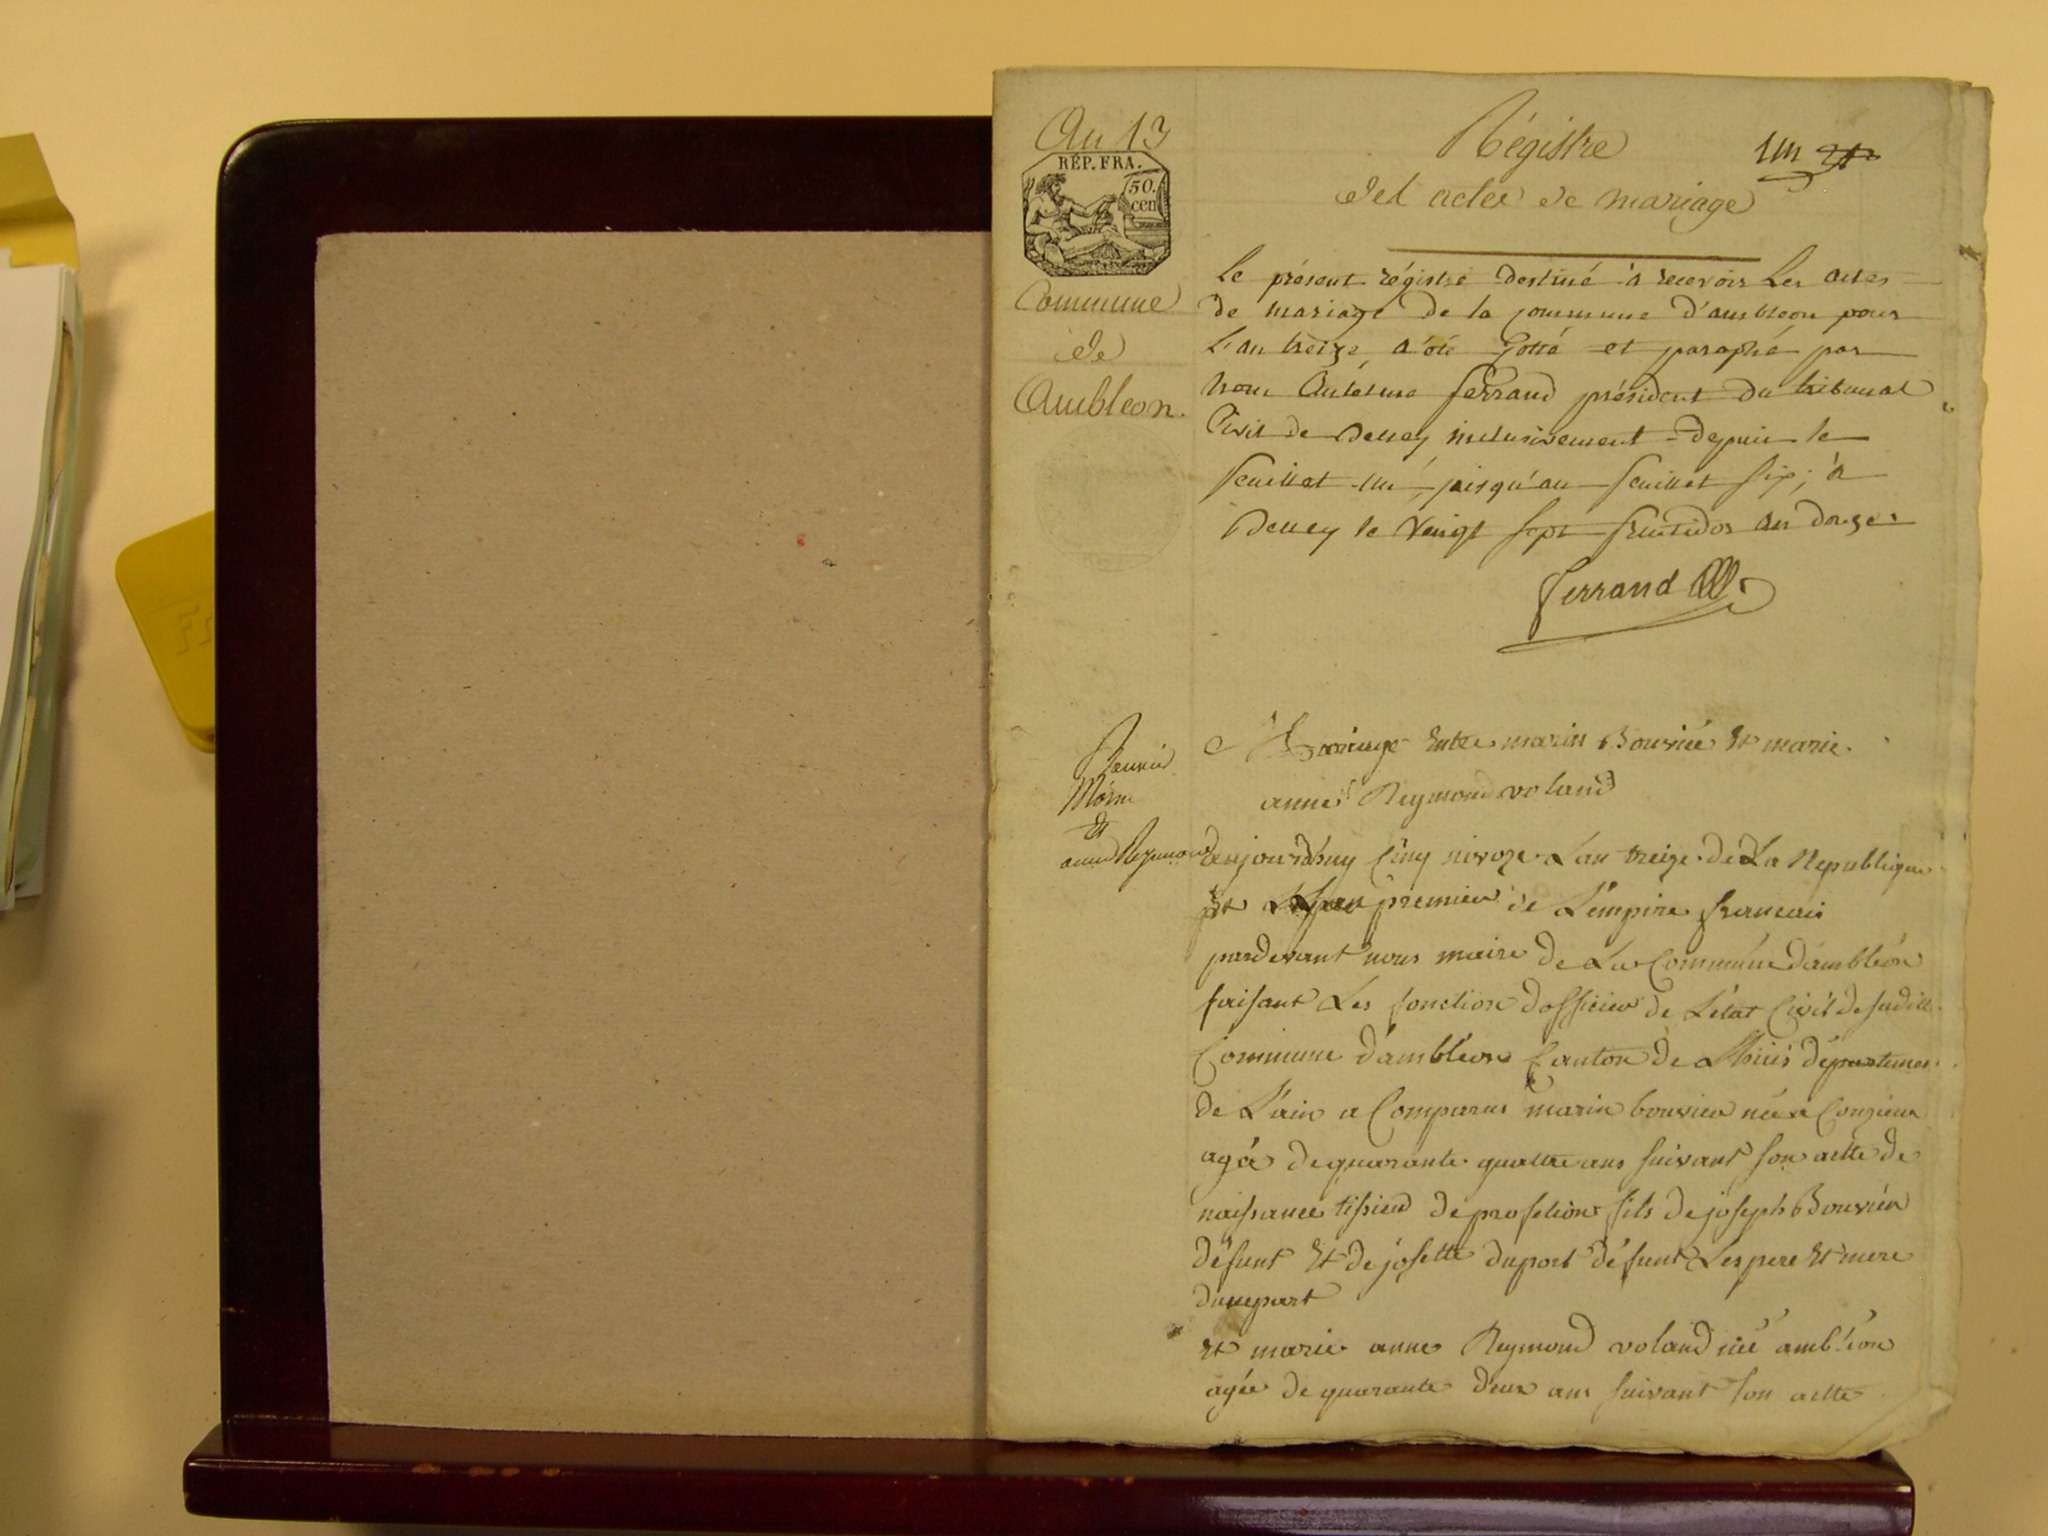 An 13
RÉP. FRA.
50.
cen
Commune
de
Ambléon.
Régistre
un
des actes de mariage
le présent régistre destiné à recevoir les actes
de mariage de la commune d'ambleon pour
l'an treize, a été Cotté et paraphé par
nous Antelme ferrand président du tribunal
Civil de Belley inclusivement depuis le
feuillet un, jusqu'au feuillet six; à
Belley le vingt sept fructidor an douze
Ferrand
Bouvier
Marin
Et
anne Reymond
Mariage Entre marin Bouvier Et marie
anne Reymond voland
aujourdhuy Cinq nivoze Lan treize de La Republique
Et premier de L'empire francais
pardevant nous maire de La Commune d'ambléon
faisant Les fonction dofficier de Létat Civil de sudite
Commune d'ambléon Canton de Lhuis départemen
de L'ain a Comparus marin bouvier née a Conzieu
agée de quarante quattre ans suivant son actte de
naissance tissieu de profession fils de joseph Bouvier
défunt Et de josette duport défunt Les pere Et mere
dunepart
Et marie anne Reymond voland née ambléon
agée de quarante deux ans suivant son actte